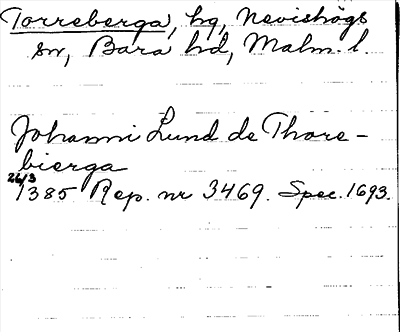 Torreberga, hg, Nevishögs
sn, Bara hd, Malm. l.
Johanni Lund de Thore-
bierga
26/3
1385 Rep. nr 3469. Spec. 1693.